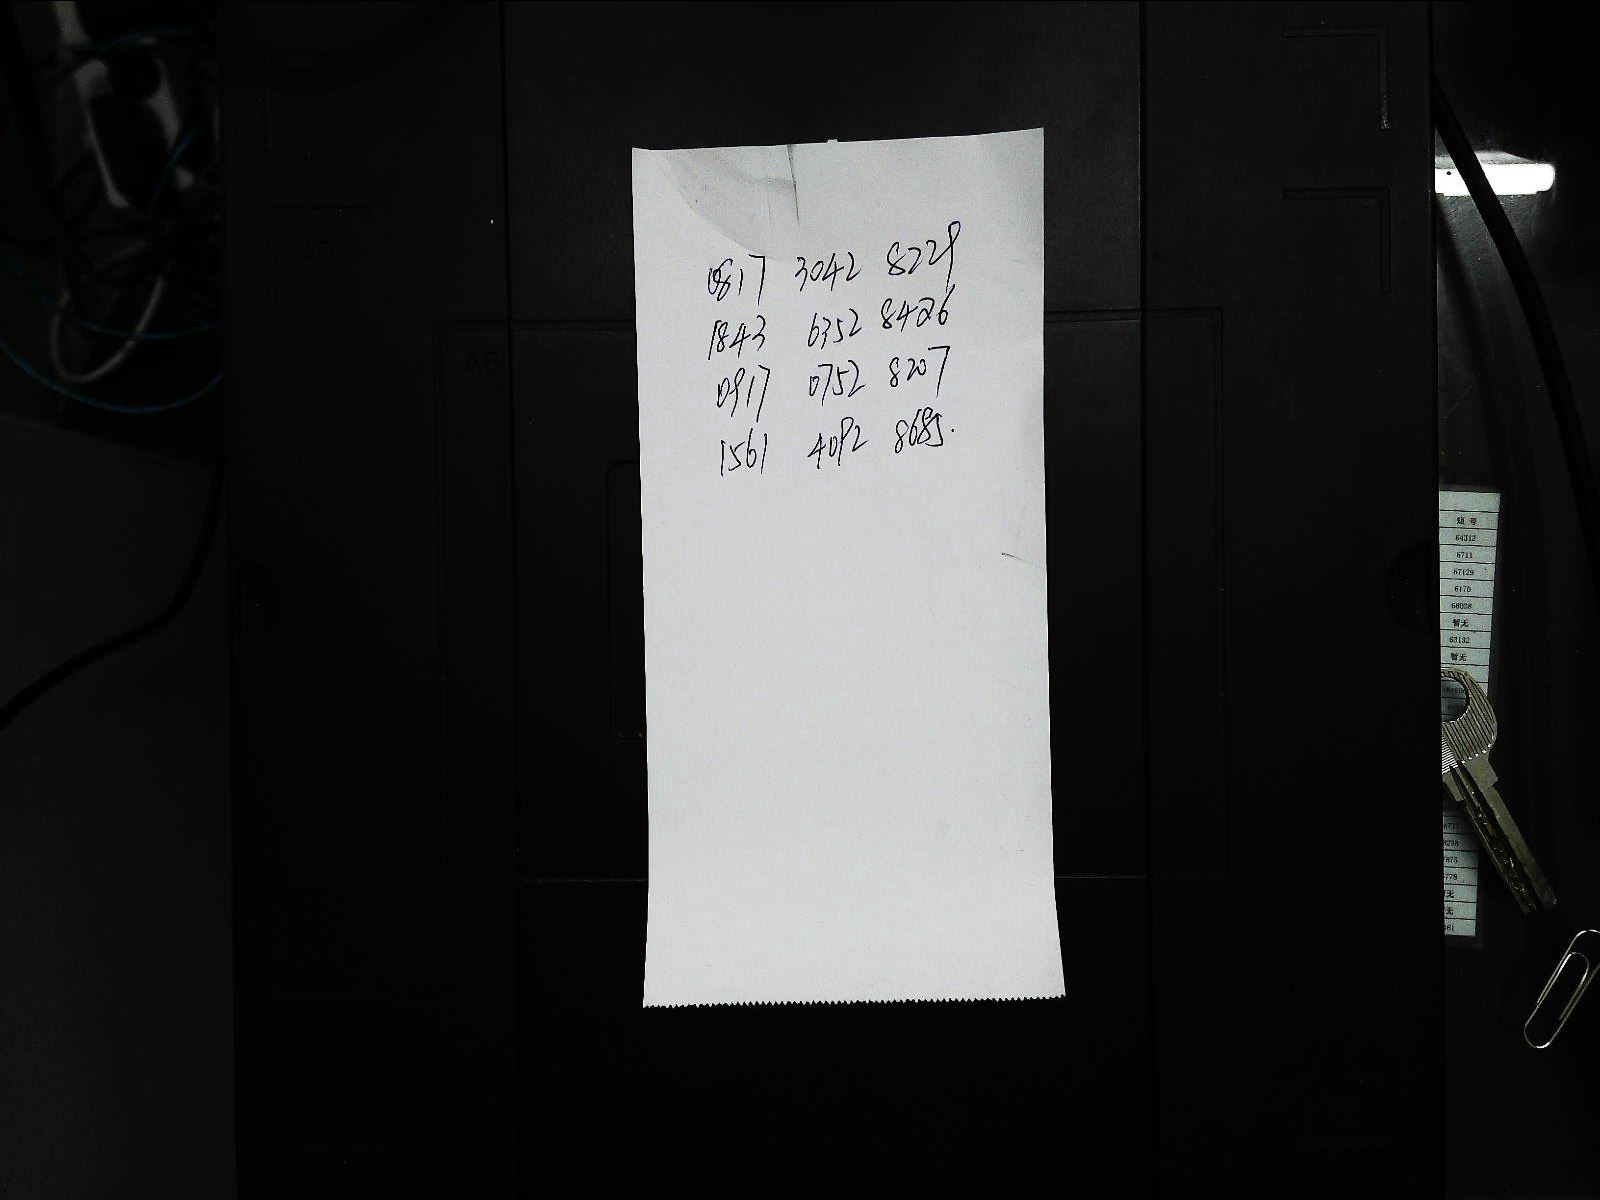 0817 3042 8229
1843 6352 8426
0917 0752 8207
1561 4092 8685.
A5
A6
短号
64312
6711
67129
6170
68038
暂无
63132
暂无